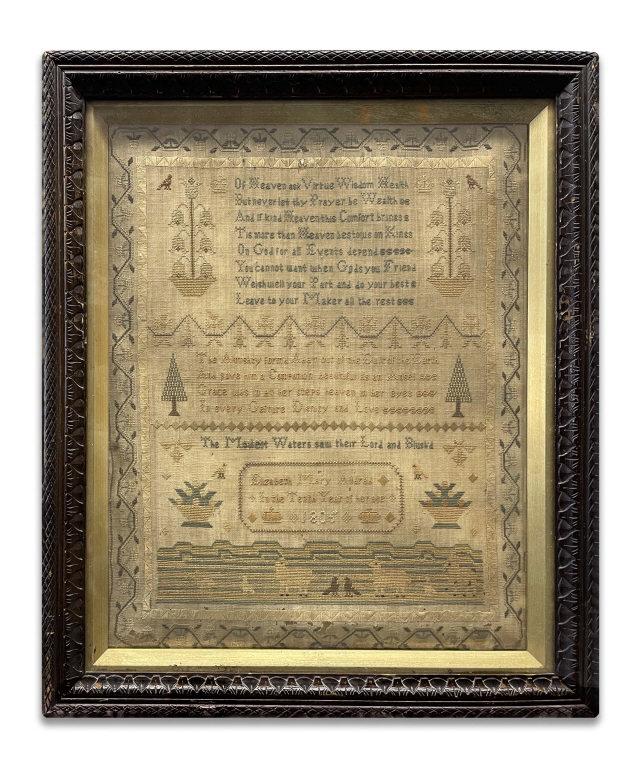 Of Heaven ask Virtue Wisdom Health
But never let thy Prayer be Wealth
And if kind Heaven this Comfort brings
Tis more than Heaven bestows on Kings
On God for all Events depend
You cannot want when Gods you Friend
Weigh well your Part and do your best
Leave to your Maker all the rest
The Almighty form'd Adam out of the Dust of the Earth
And gave him a Companion beautiful as an Angel
Grace was in all her steps heaven in her eyes
In every Gesture Dignity and Love
The Modest Waters saw their Lord and Blush'd
Elizabeth Mary
In the Tenth Year of her age